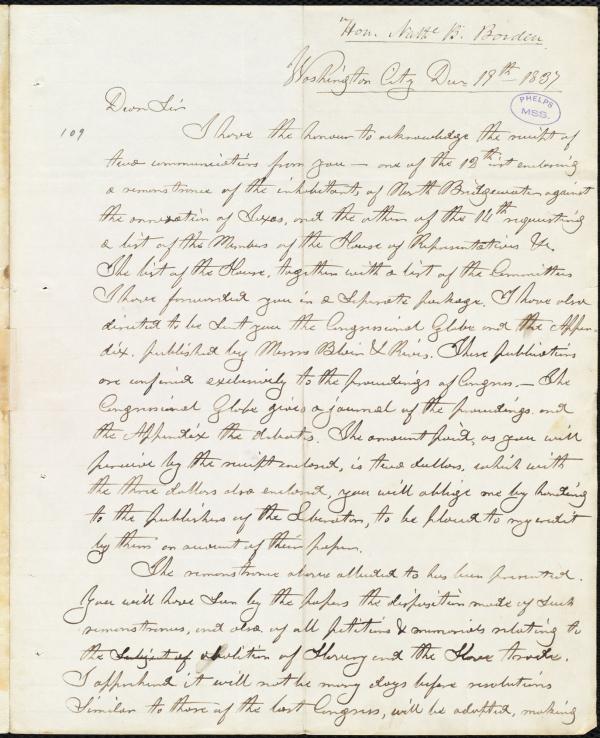 Hon. Nathl B. Borden
Washington City Dec 19th 1837
PHELPS
MSS.
Dear Sir
109
I have the honour to acknowledge the receipt of
two communications from you — one of the 12th inst enclosing
a remonstrance of the inhabitants of North Bridgewater against
the annexation of Texas, and the other of the 14th requesting
a list of the Members of the House of Representatives &c.
The list of the House, together with a list of the Committees
I have forwarded you in a separate package. I have also
directed to be sent you the Congressional Globe and the Appen-
dix, published by Messrs Blair & Rives. These publications
are confined exclusively to the proceedings of Congress. — The
Congressional Globe gives a journal of the proceedings and
the Appendix the debates. The amount paid, as you will
perceive by the receipt enclosed, is two dollars, which with
the three dollars also enclosed, you will oblige me by handing
to the publishers of the Liberator, to be placed to my credit
by them on account of their paper.
The remonstrance above alluded to has been presented.
You will have seen by the papers the disposition made of such
remonstrances, and also of all petitions & memorials relating to
the subject of abolition of Slavery and the Slave trade.
I apprehend it will not be many days before resolutions
similar to those of the last Congress, will be adopted, making